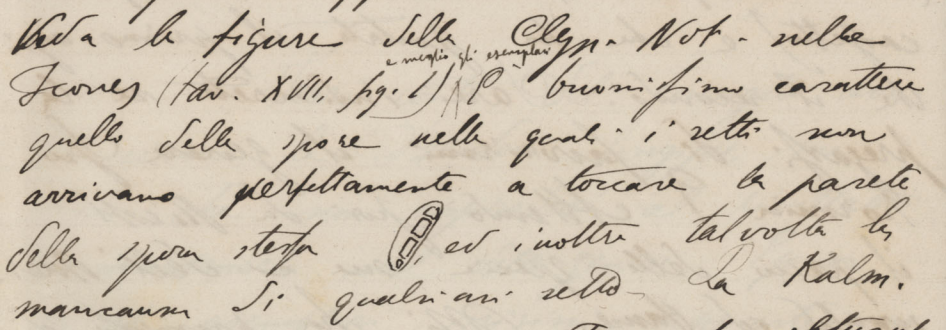 Veda le figure della Clyp. Not. nelle
e meglio gli esemplari
Icones (tav. XVII, fig. 1) È buonissimo carattere
quello delle spore nelle quali i setti non
arrivano perfettamente a toccare la parete
della spora stessa, ed inoltre talvolta la
mancanza di qualsiasi setto. La Kalm.